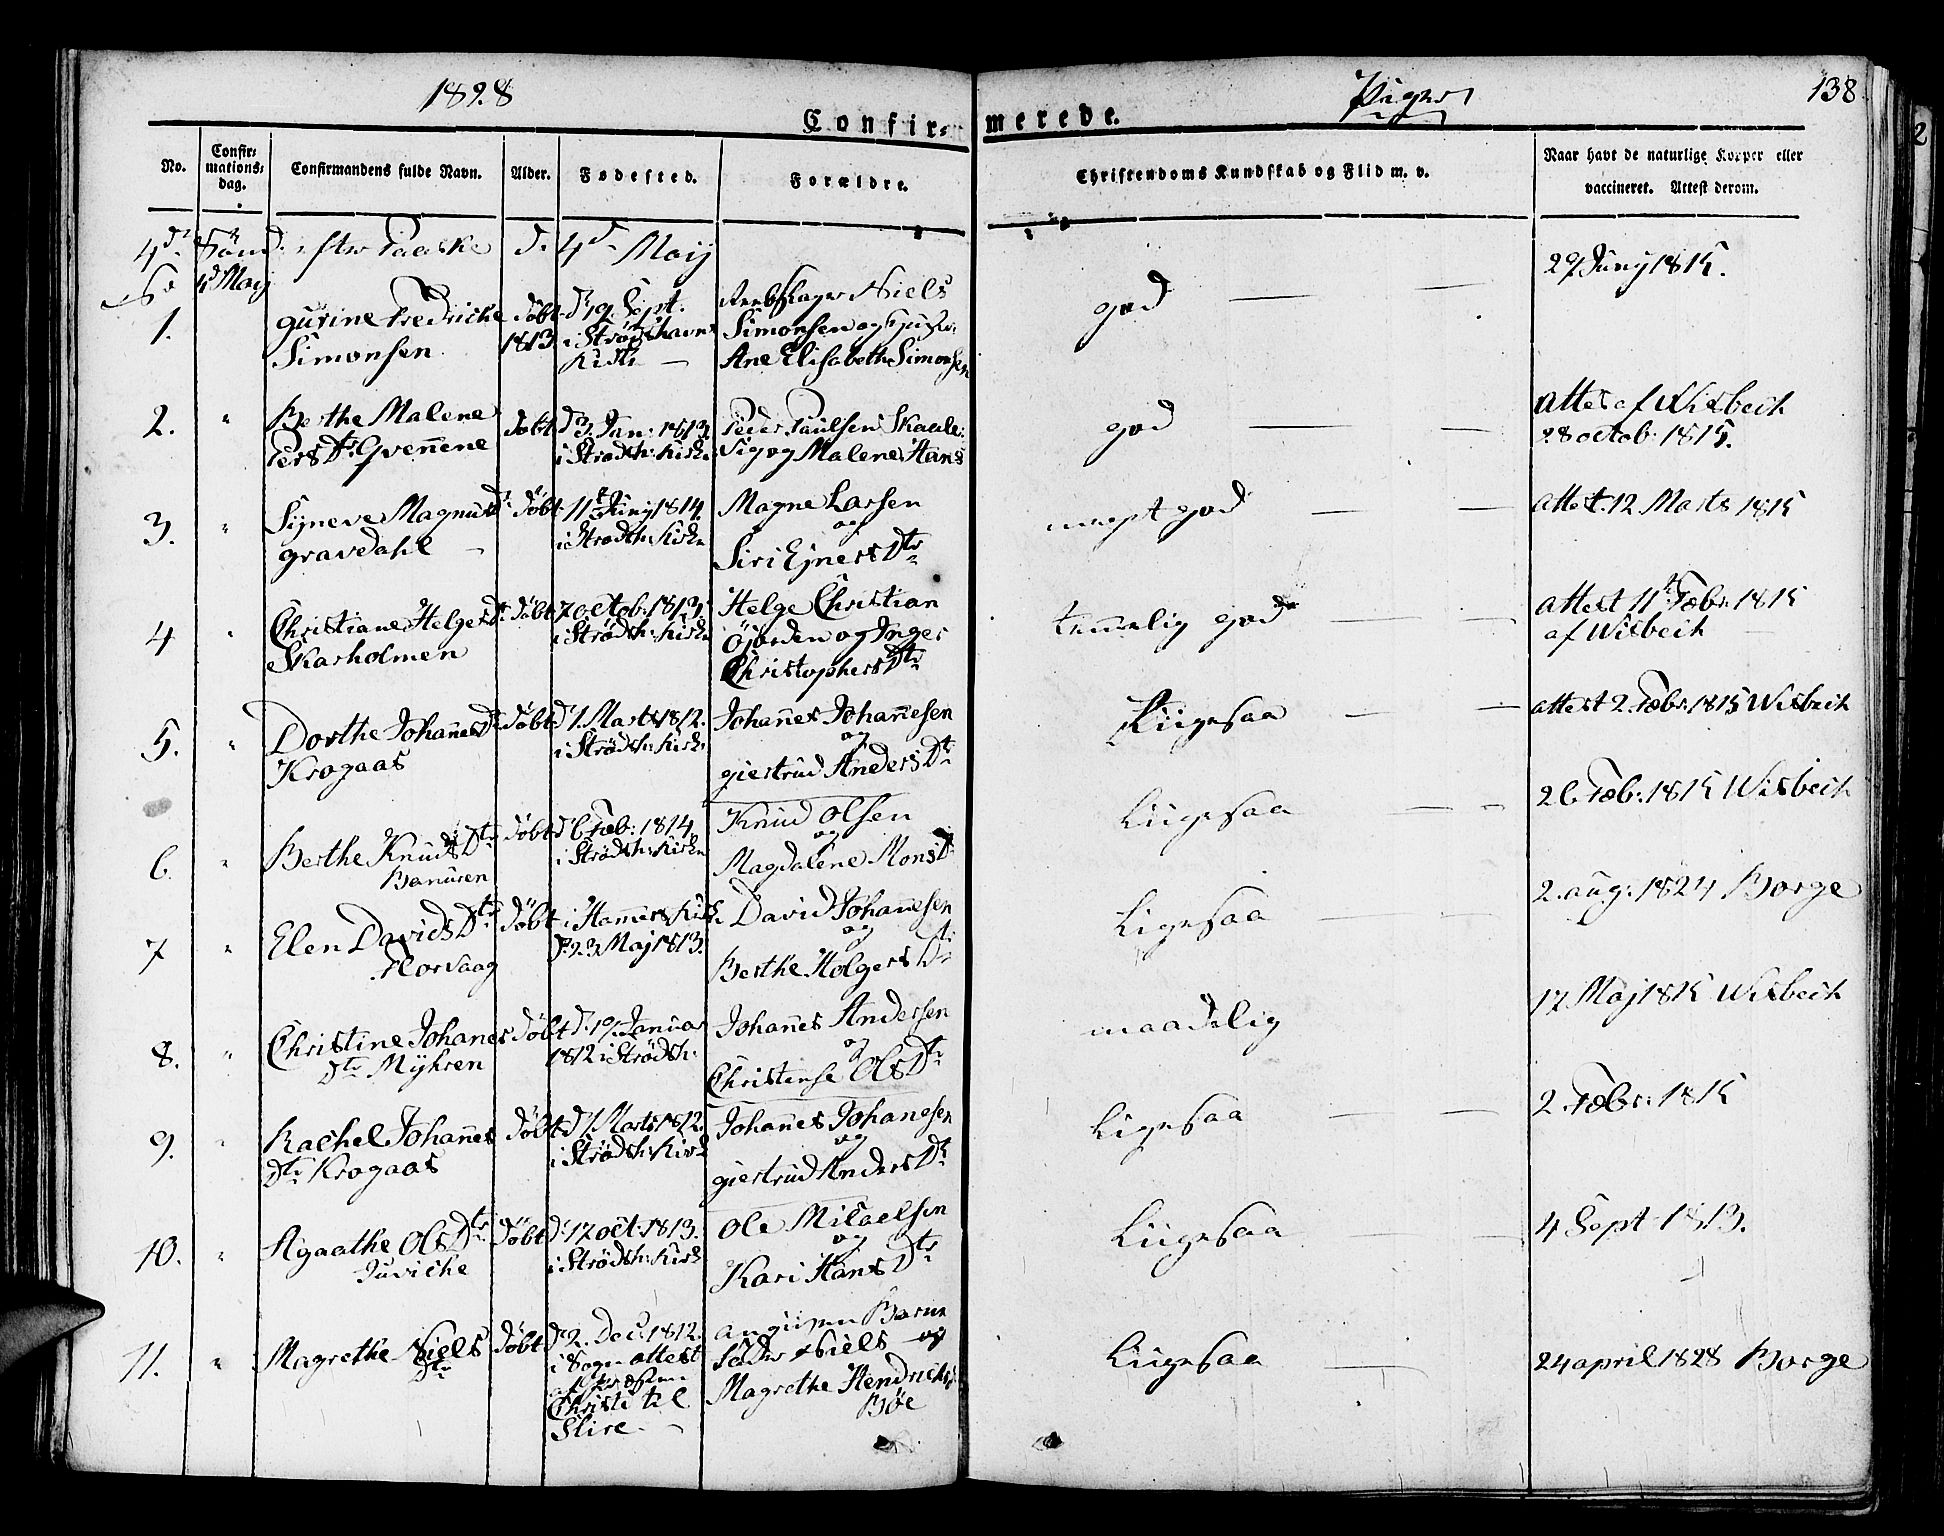 1828
Piger
138
Confir-
merede.
No.
Confir-
mations-
dag.
Confirmandens fulde Navn.
Alder.
Fødested.
Forældre.
Christendoms Kundskab og Flid m. v.
Naar havt de naturlige Kopper eller
vaccineret. Attest derom.
4de Sönd. efter Paaske d. 4d Maij
29 Juny 1815.
4d Maij
1.
gurine Fredriche
Simonsen
döbt
1813
d. 19 Sept.
i Strödshavns
Kirke
Niels
Simonsen og
Ane Elisabeth Simonsen
god
2.
Berthe Malene
Pers Dtr Qvennene
döbt
d 3. Jan: 1813.
i Strødsh: Kirke
Peder Paulsen Skaale-
vig og Malene Hans
god
attest af Wisbech
28 octob: 1815.
3.
Syneve Magnus Dr
gravdahl
döbt
11t Juny 1814.
i Strødsh: Kirke
Magne Larsen
og
Siri Ejners Dtr
meget god
attest. 12 Marts 1815
4
Christiane Helges Dr
Skarholmen
döbt
7 octob: 1813.
i Strödsh: Kirke
Helge Christian
Öjorden og Inger
Christophers Dtr
temmelig god
attest 11t Febr: 1815
af Wisbech
5.
Dorthe Johannes Dr
Krogaas
döbt
d. 1. Marts 1812.
i Strödsh: Kirke
Johannes Johannesen
og
giertrud Anders Dtr
Liigesaa
attest 2. Febr: 1815 Wisbech
6.
Berthe Knuds Dtr
döbt
d 6 Feb: 1814.
i Strödsh: Kirke
Knud Olsen
og
Magdalene Mons Dr
Liigesaa
26 Feb: 1815 Wisbech
7
Elen Davids Dtr
Florvaag
döbt
i Hammers Kirke
d. 23 Maj 1813.
David Johannesen
og
Berthe Holgers Dtr
Ligesaa
2. aug: 1824 Borge
8.
Christine Johanes
Dtr Myhren
döbt
d. 19. Januar
1812 i Strödsh:
Johannes Andersen
og
Christense Ols Dtr
maadelig
17 Maj 1815 Wisbech
9.
Rachel Johannes
Dtr Krogaas
döbt
d 1. Marts 1812.
i Strödsh: Kirke
Johannes Johanesen
og
giertrud Anders Dtr
Ligesaa
2. Febr: 1815
10.
Agaathe Ols Dtr
Juviche
döbt
d. 17 oct: 1813.
i Strödsh: Kirke
Ole Micaelsen
og
Kari Hans Dtr
Liigesaa
4 Sept 1813.
11.
Magrethe Niels
Dtr
döbt
d 2. Dec: 1812.
i Sogn attest
Christi til
Slire
angiven Barne
fader Niels og
Magrethe Hendrichs
Bøe
Liigesaa
24 april 1828 Borge